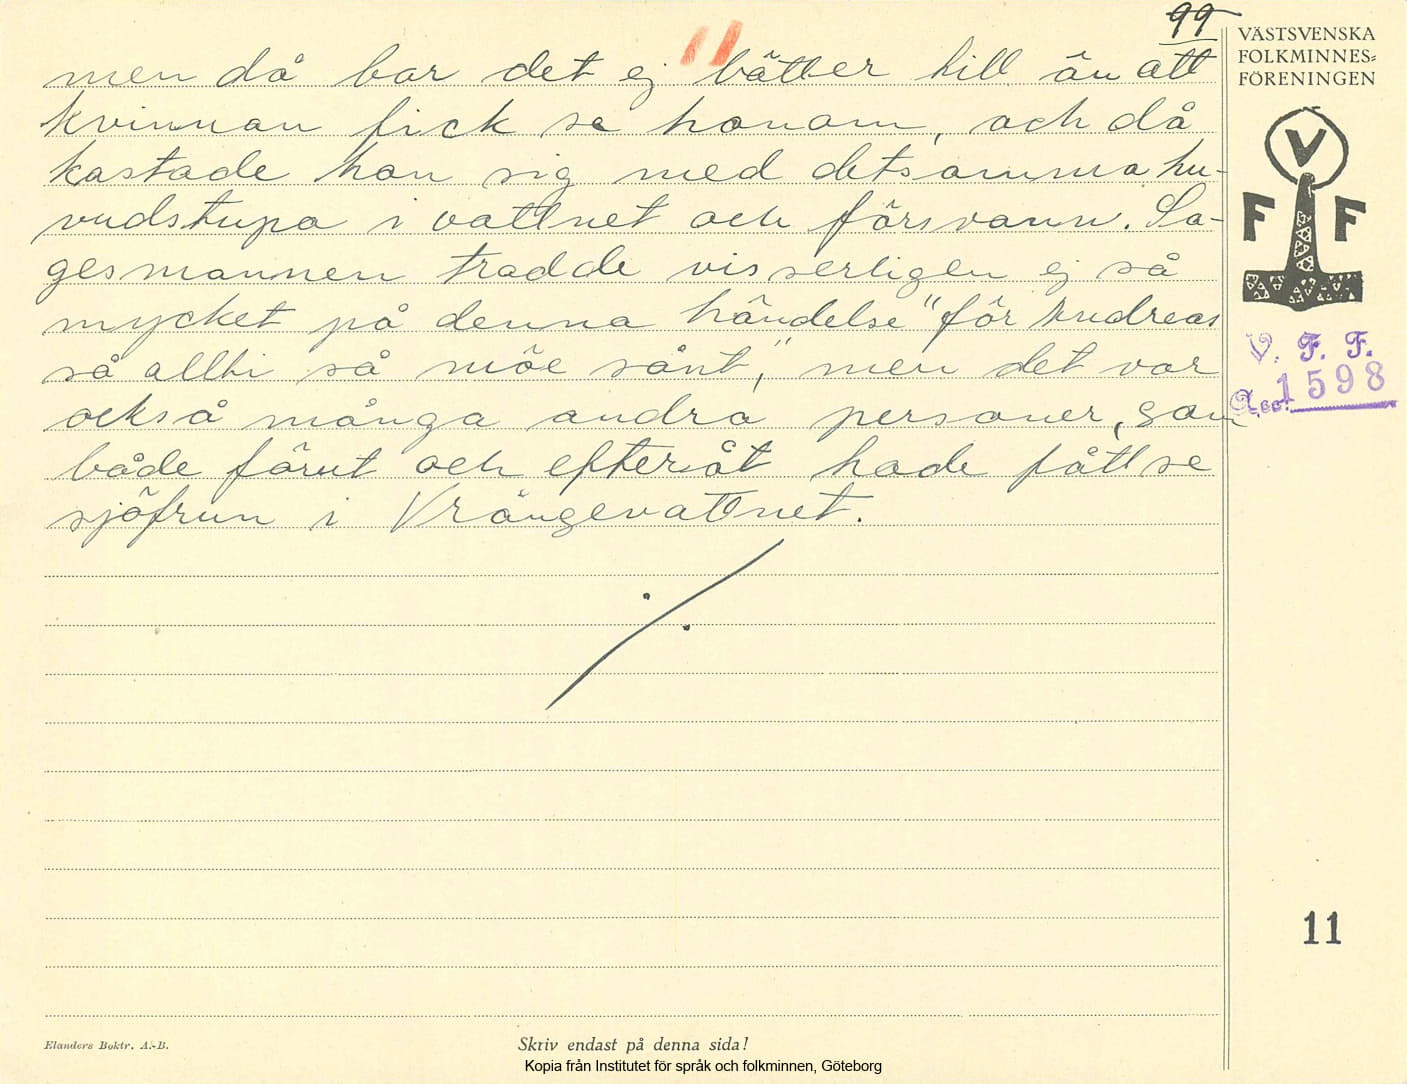 99
men då bar det ej bättber till än att
kvinnan fick se honom, och då
kastade han sig med detsamma hu-
vudstupa i vattnet och försvann. Sa-
gesmannen trodde visserligen ej så
mycket på denna händelse "för Andreas
så alltti så möe sånt," men det var
också många andra personer, som
både förut och efteråt hade fått se
sjöfrun i Vrångevattnet.
VÄSTSVENSKA
FOLKMINNES=
FÖRENINGEN
V
F F
V. F. F.
Acc. 1598
11
Elanders Boktr. A.-B.
Skriv endast på denna sida!
Kopia från Institutet för språk och folkminnen, Göteborg